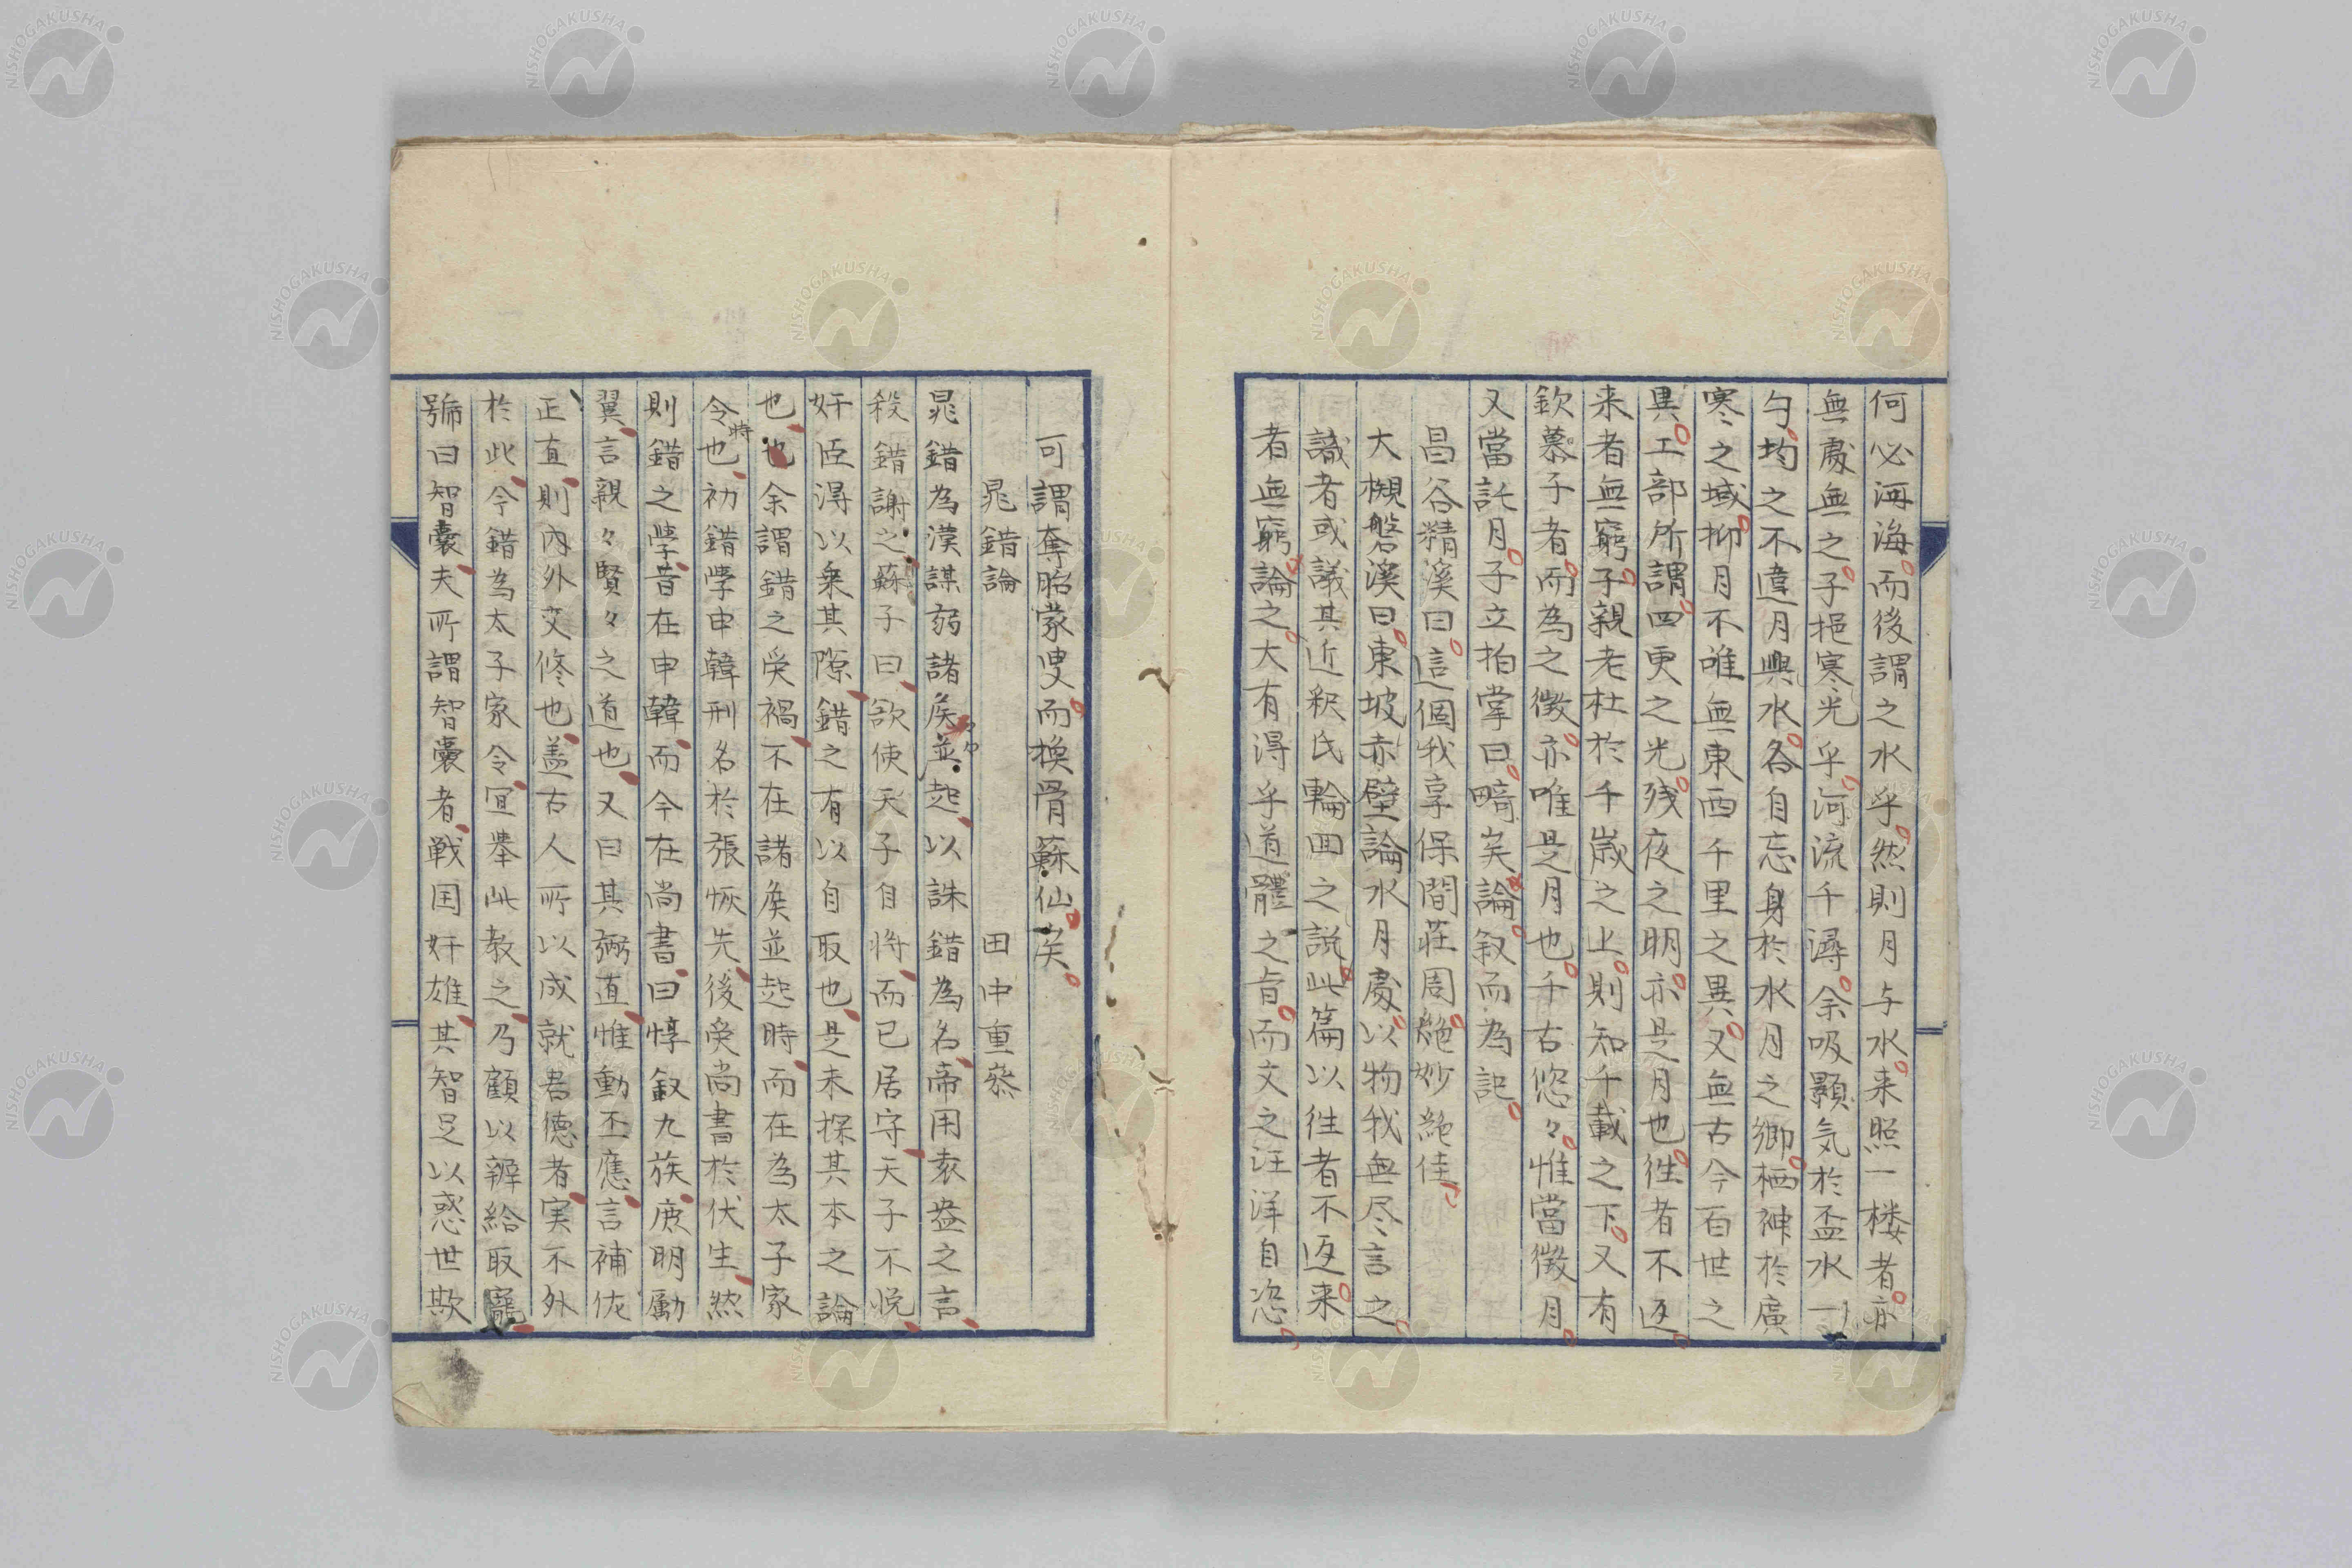 何必河海而後謂之水乎然則月与水来照一楼者亦
無處無之子挹寒光乎河流千潯余吸顥気於盃水一
勺均之不違月與水各自忘身於水月之郷栖神於廣
寒之域抑月不唯無東西千里之異又無古今百世之
異工部所謂四更之光残夜之明亦是月也徃者不返
来者無窮子親老杜於千歳之上則知千載之下又有
欽慕子者而為之徴亦唯是月也千古悠々惟當徴月
又當託月子立拍掌曰畸矣論叙而為記
昌谷精溪曰這個我享保間荘周絶妙絶佳
大槻磐溪曰東坡赤壁論水月處以物我無尽言之
識者或議其近釈氏輪回之説此篇以徃者不返来
者無窮論之大有得乎道體之旨而文之汪洋自恣
可謂奪胎蒙叟而換骨蘇仙矣
晁錯論 田中重
晁錯為漢謀弱諸矦々々並起以誅錯為名帝用袁盎之言
殺錯謝之蘇子曰欲使天子自将而已居守天子不悦
奸臣得以乗其隙錯之有以自取也是未探其本之論
也余謂錯之受禍不在諸矦並起時而在為太子家
令時也初錯學申韓刑名於張恢先後受尚書於伏生然
則錯之學昔在申韓而今在尚書曰惇叙九族庶明勵
翼言親々賢々之道也又曰其弼直惟動丕應言補佐
正直則内外交修也盖古人所以成就君徳者実不外
於此今錯為太子家令宜挙此教之乃顧以辨給取寵
號曰智嚢夫所謂智嚢者戦国奸雄其智足以惑世欺